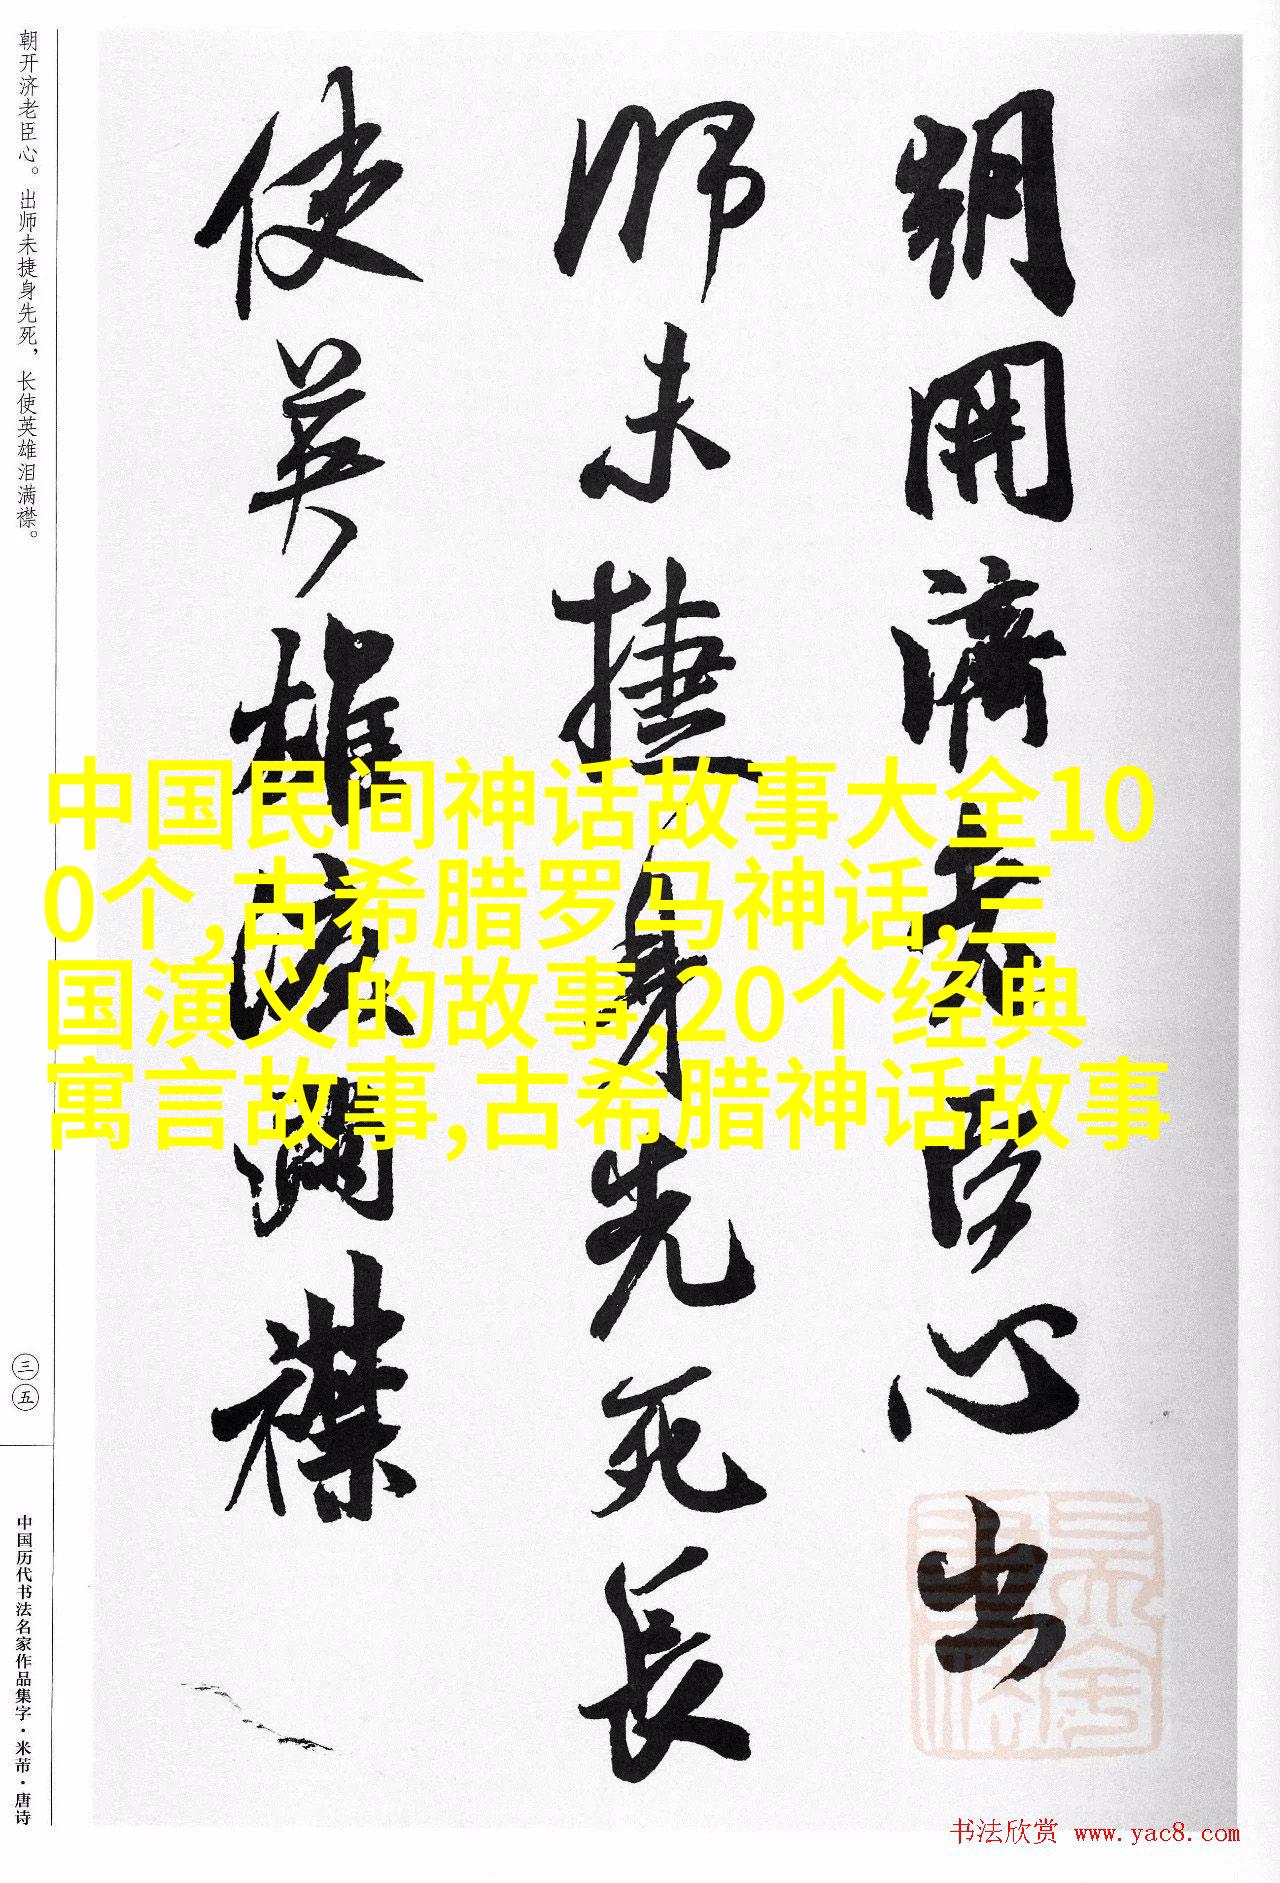 朝开济老臣心。出师未捷身先死，长使英雄泪满襟。
朝開濟老臣心出
師未捷身先死長
使英雄淚滿襟
中国民间神话故事大全10
0个,古希腊罗马神话,三
国演义的故事,20个经典
寓言故事,古希腊神话故事
三五
中国历代书法名家作品集字·米芾·唐诗
书法欣赏 www.yac8.com